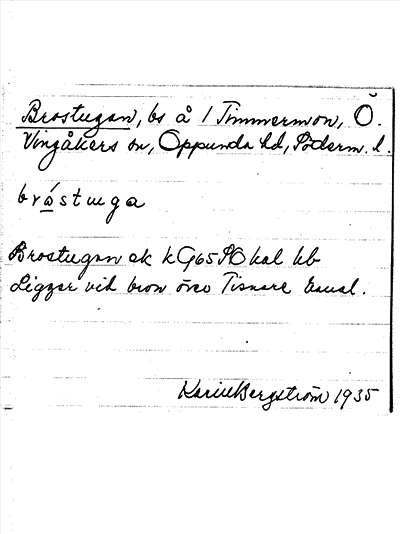 Brostugan, bs å 1 Timmermon, Ö.
Vingåkers sn, Oppunda hd, Söderm. l.
bróstuga
Brostugan ek kG65SO hal kb
Ligger vid bron över Tisnare kanal.
Karin Bergström 1935